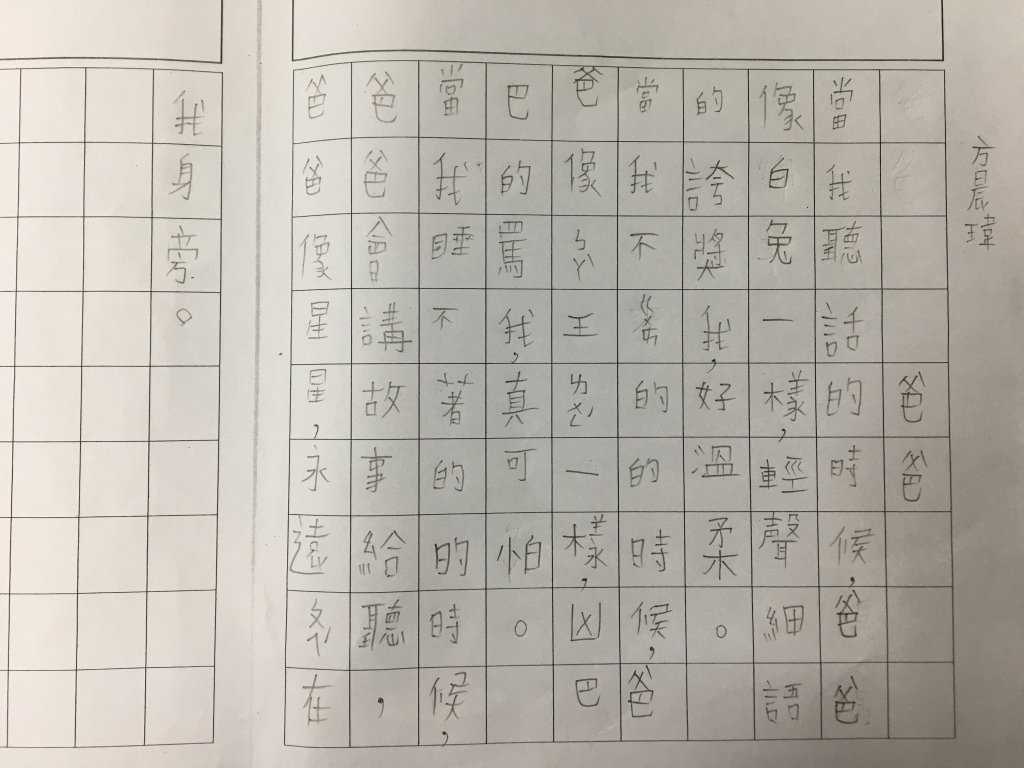 方晨瑋
爸爸
當我聽話的時候，爸爸
像白兔一樣，輕聲細語
的誇獎我，好溫柔。
當我不的的時候，爸
爸像王一樣，凶巴
巴的罵我，真可怕。
當我睡不著的的時候，
爸爸會講故事給聽，
爸爸像星星，永遠ㄆㄟˊ在
我身旁。